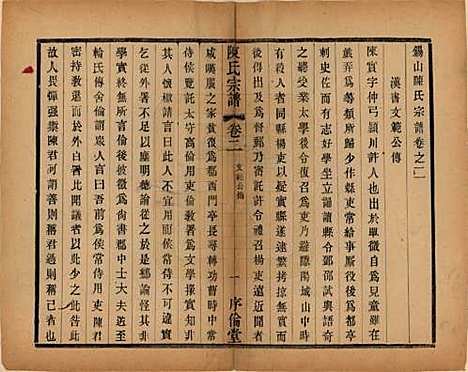 錫山陳氏宗譜卷之二
漢書文範公傳
陳寔字仲弓潁川許人也出於單微自為兒童雖在
戲弄為等類所歸少作縣吏常給事廝役後為都亭
刺史佐而有志好學坐立誦讀縣令鄧邵試與語奇
之聽受業太學後令復召為吏乃避隱陽城山中時
有殺人者同縣楊吏以疑寔縣遂逮繫考掠無實而
後得出及為督郵乃密託許令禮召楊吏遠近聞者
咸歎服之家貧復為郡西門亭長尋轉功曹時中常
侍侯覽託太守高倫用吏倫教署為文學掾寔知非
其人懷檄請見言曰此人不宜用而侯常侍不可違
寔乞從外署不足以塵明德倫從之於是鄉論怪其非
學寔終無所言倫後被徵為尚書郡中士大夫送至
輪氏傳舍倫謂眾人言曰吾前為侯常侍用吏陳君
密持教還而於外白署比聞議者以此少之此咎由
故人畏憚強禦陳君可謂善則稱君過則稱己者也
陳氏宗譜
卷二
文範公傳
一
序倫堂